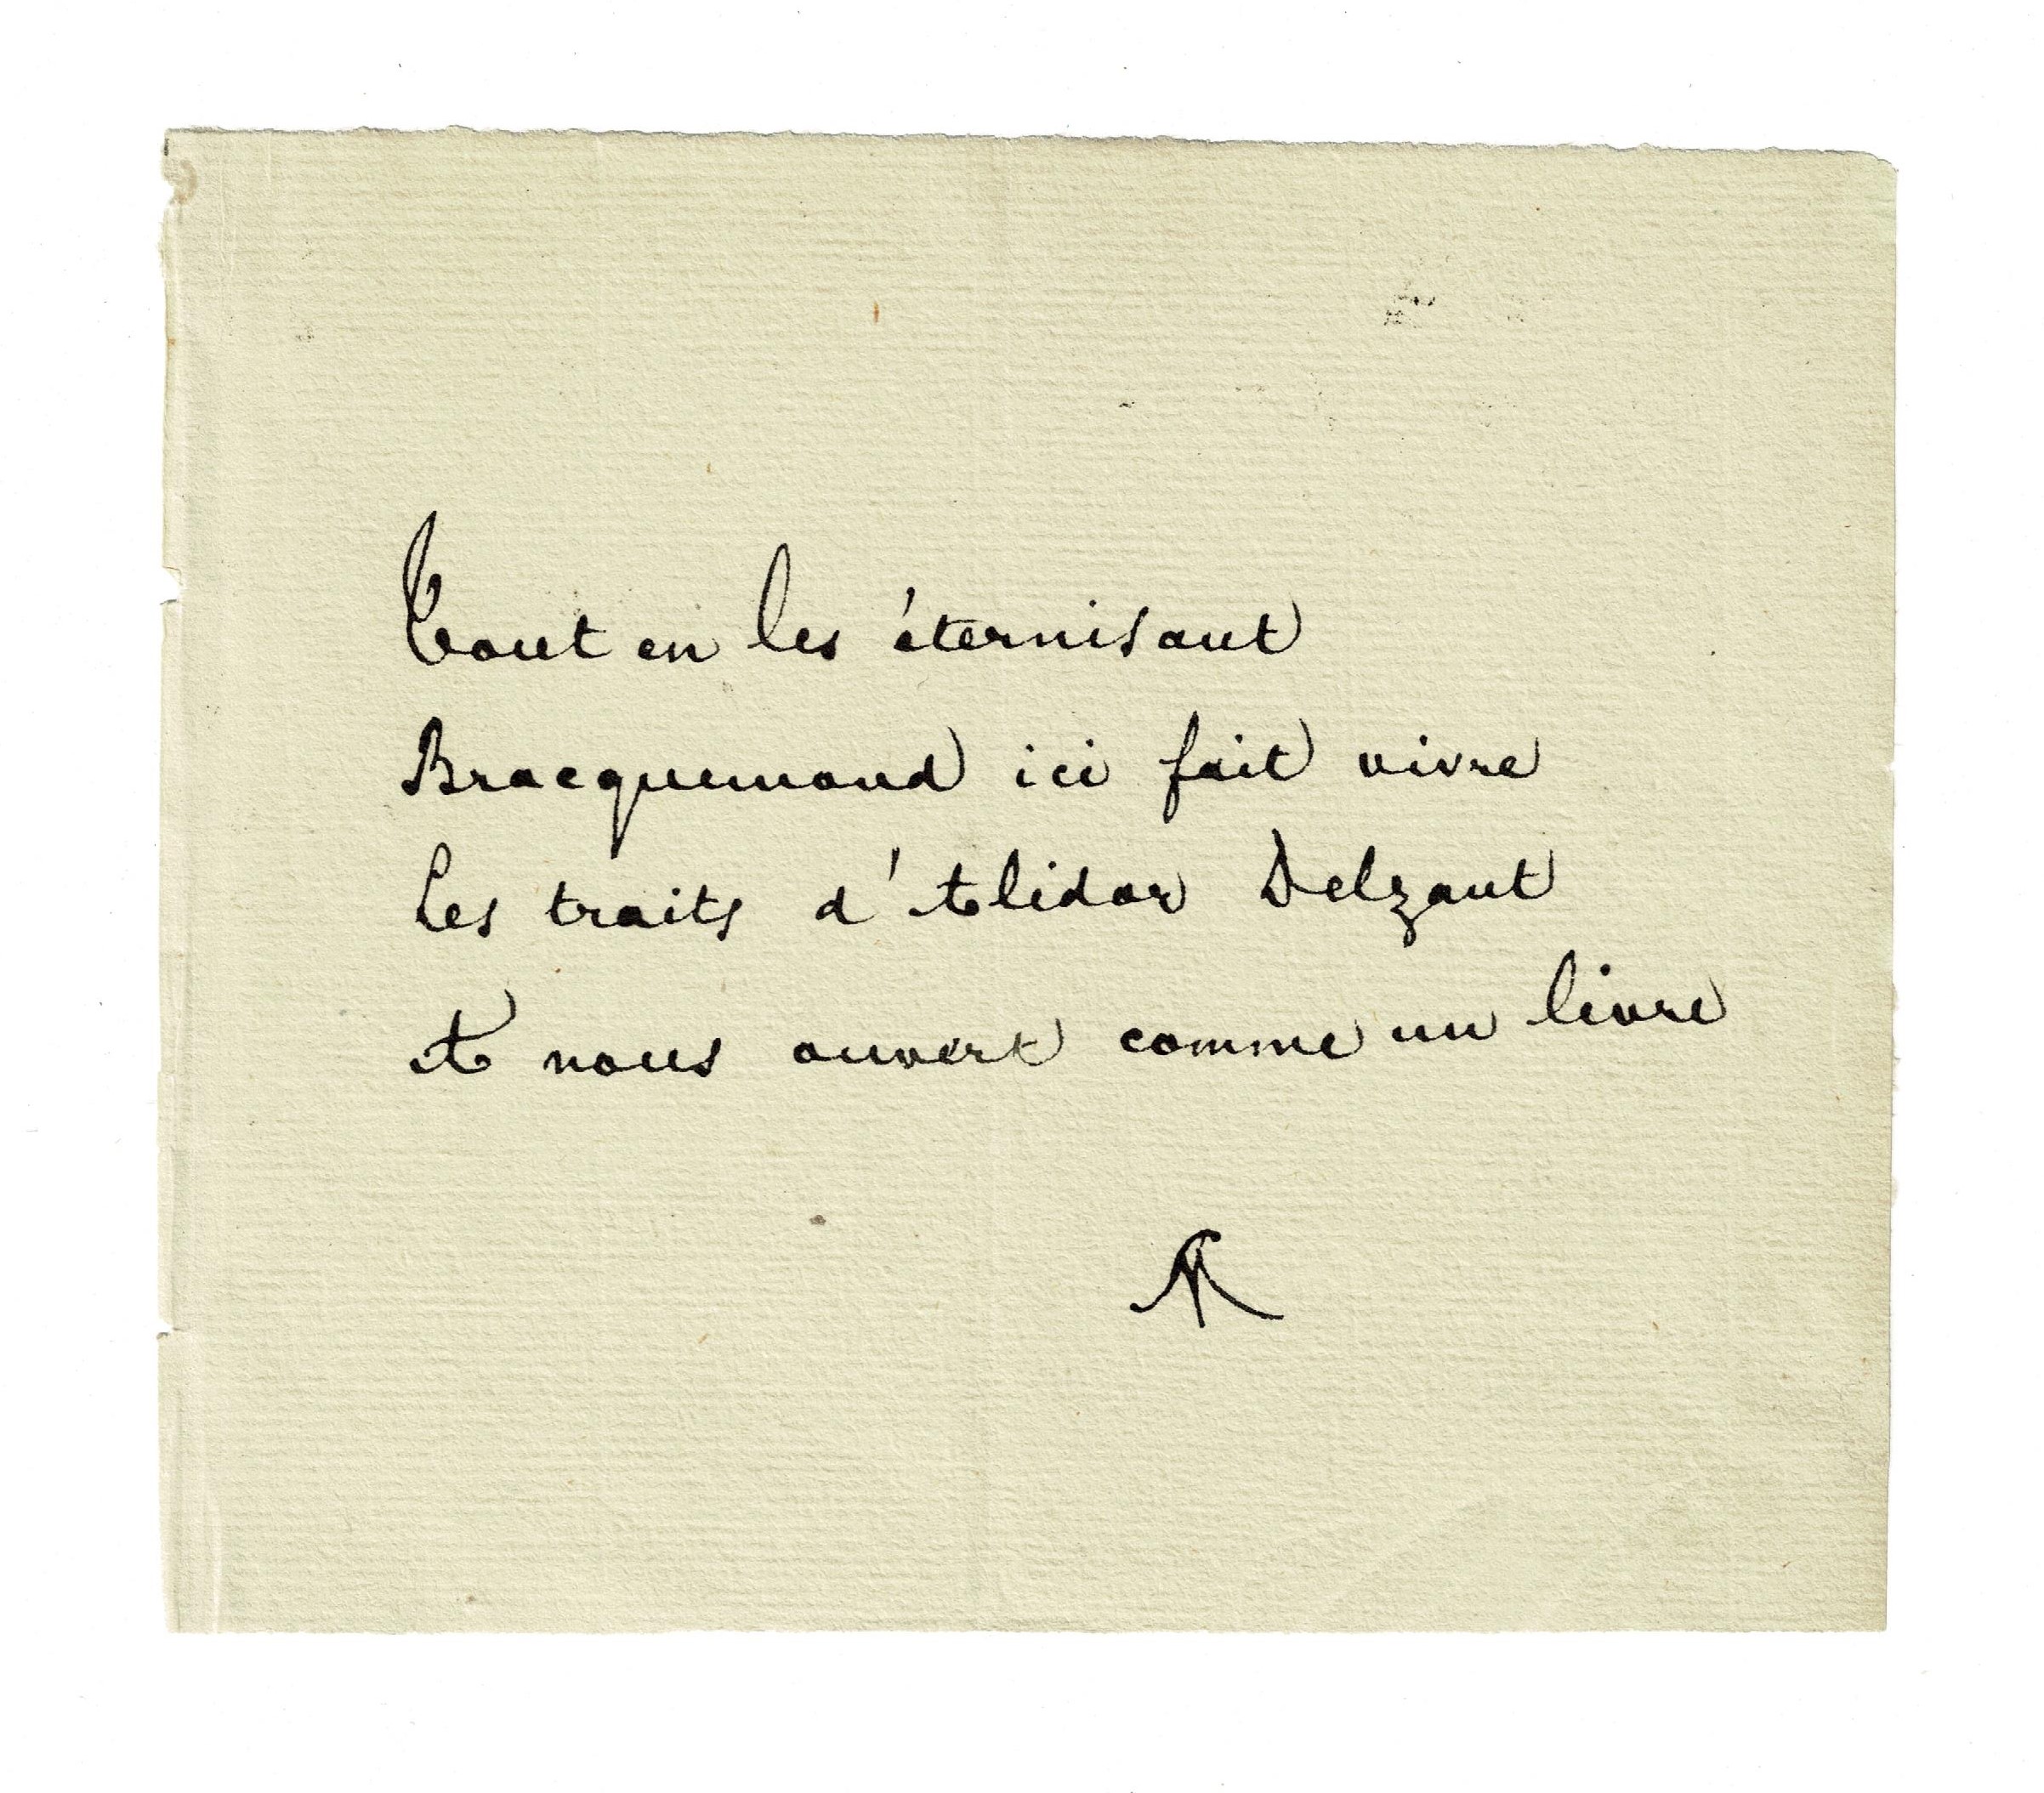 Tout en les éternisant
Bracquemond ici fait vivre
Les traits d'Alidor Delzant
A nous ouvert comme un livre